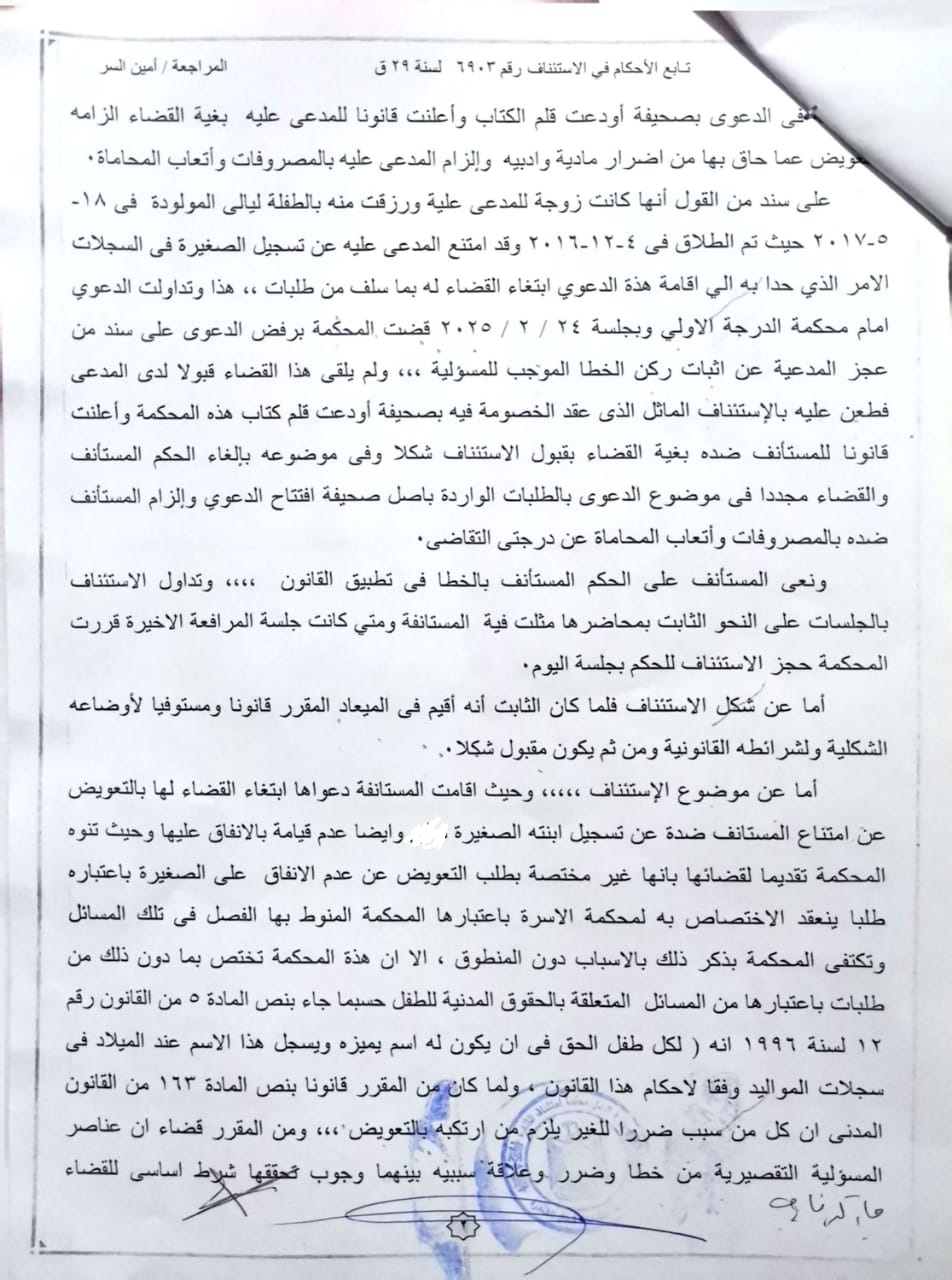 تابع الأحكام في الاستئناف رقم ٦٩٠٣ لسنة ٢٩ ق المراجعة / أمين السر
فى الدعوى بصحيفة أودعت قلم الكتاب وأعلنت قانونا للمدعى عليه بغية القضاء الزامه
عما حاق بها من اضرار مادية وادبيه وإلزام المدعى عليه بالمصروفات وأتعاب المحاماة٠
على سند من القول أنها كانت زوجة للمدعى علية ورزقت منه بالطفلة ليالى المولودة فى ١٨-
٥-٢٠١٧ حيث تم الطلاق فى ٤-١٢-٢٠١٦ وقد امتنع المدعى عليه عن تسجيل الصغيرة فى السجلات
الامر الذي حدا به الي اقامة هذة الدعوي ابتغاء القضاء له بما سلف من طلبات ،، هذا وتداولت الدعوي
امام محكمة الدرجة الاولي وبجلسة ٢٤ / ٢ / ٢٠٢٥ قضت المحكمة برفض الدعوى على سند من
عجز المدعية عن اثبات ركن الخطا الموجب للمسؤلية ،،، ولم يلقى هذا القضاء قبولا لدى المدعى
فطعن عليه بالإستئناف الماثل الذى عقد الخصومة فيه بصحيفة أودعت قلم كتاب هذه المحكمة وأعلنت
قانونا للمستأنف ضده بغية القضاء بقبول الاستئناف شكلا وفى موضوعه بإلغاء الحكم المستأنف
والقضاء مجددا فى موضوع الدعوى بالطلبات الواردة باصل صحيفة افتتاح الدعوي وإلزام المستأنف
ضده بالمصروفات وأتعاب المحاماة عن درجتى التقاضى٠
ونعى المستأنف على الحكم المستأنف بالخطا فى تطبيق القانون ،،،، وتداول الاستئناف
بالجلسات على النحو الثابت بمحاضرها مثلت فية المستانفة ومتي كانت جلسة المرافعة الاخيرة قررت
المحكمة حجز الاستئناف للحكم بجلسة اليوم٠
أما عن شكل الاستئناف فلما كان الثابت أنه أقيم فى الميعاد المقرر قانونا ومستوفيا لأوضاعه
الشكلية ولشرائطه القانونية ومن ثم يكون مقبول شكلا٠
أما عن موضوع الإستئناف ،،،،، وحيث اقامت المستانفة دعواها ابتغاء القضاء لها بالتعويض
عن امتناع المستانف ضدة عن تسجيل ابنته الصغيرة وايضا عدم قيامة بالانفاق عليها وحيث تنوه
المحكمة تقديما لقضائها بانها غير مختصة بطلب التعويض عن عدم الانفاق على الصغيرة باعتباره
طلبا ينعقد الاختصاص به لمحكمة الاسرة باعتبارها المحكمة المنوط بها الفصل فى تلك المسائل
وتكتفى المحكمة بذكر ذلك بالاسباب دون المنطوق ، الا ان هذة المحكمة تختص بما دون ذلك من
طلبات باعتبارها من المسائل المتعلقة بالحقوق المدنية للطفل حسبما جاء بنص المادة ٥ من القانون رقم
١٢ لسنة ١٩٩٦ انه ( لكل طفل الحق فى ان يكون له اسم يميزه ويسجل هذا الاسم عند الميلاد فى
سجلات المواليد وفقا لاحكام هذا القانون ، ولما كان من المقرر قانونا بنص المادة ١٦٣ من القانون
المدنى ان كل من سبب ضررا للغير يلزم من ارتكبه بالتعويض ،،، ومن المقرر قضاء ان عناصر
المسؤلية التقصيرية من خطا وضرر وعلاقة سببيه بينهما وجوب تحققها شرط اساسى للقضاء
٢